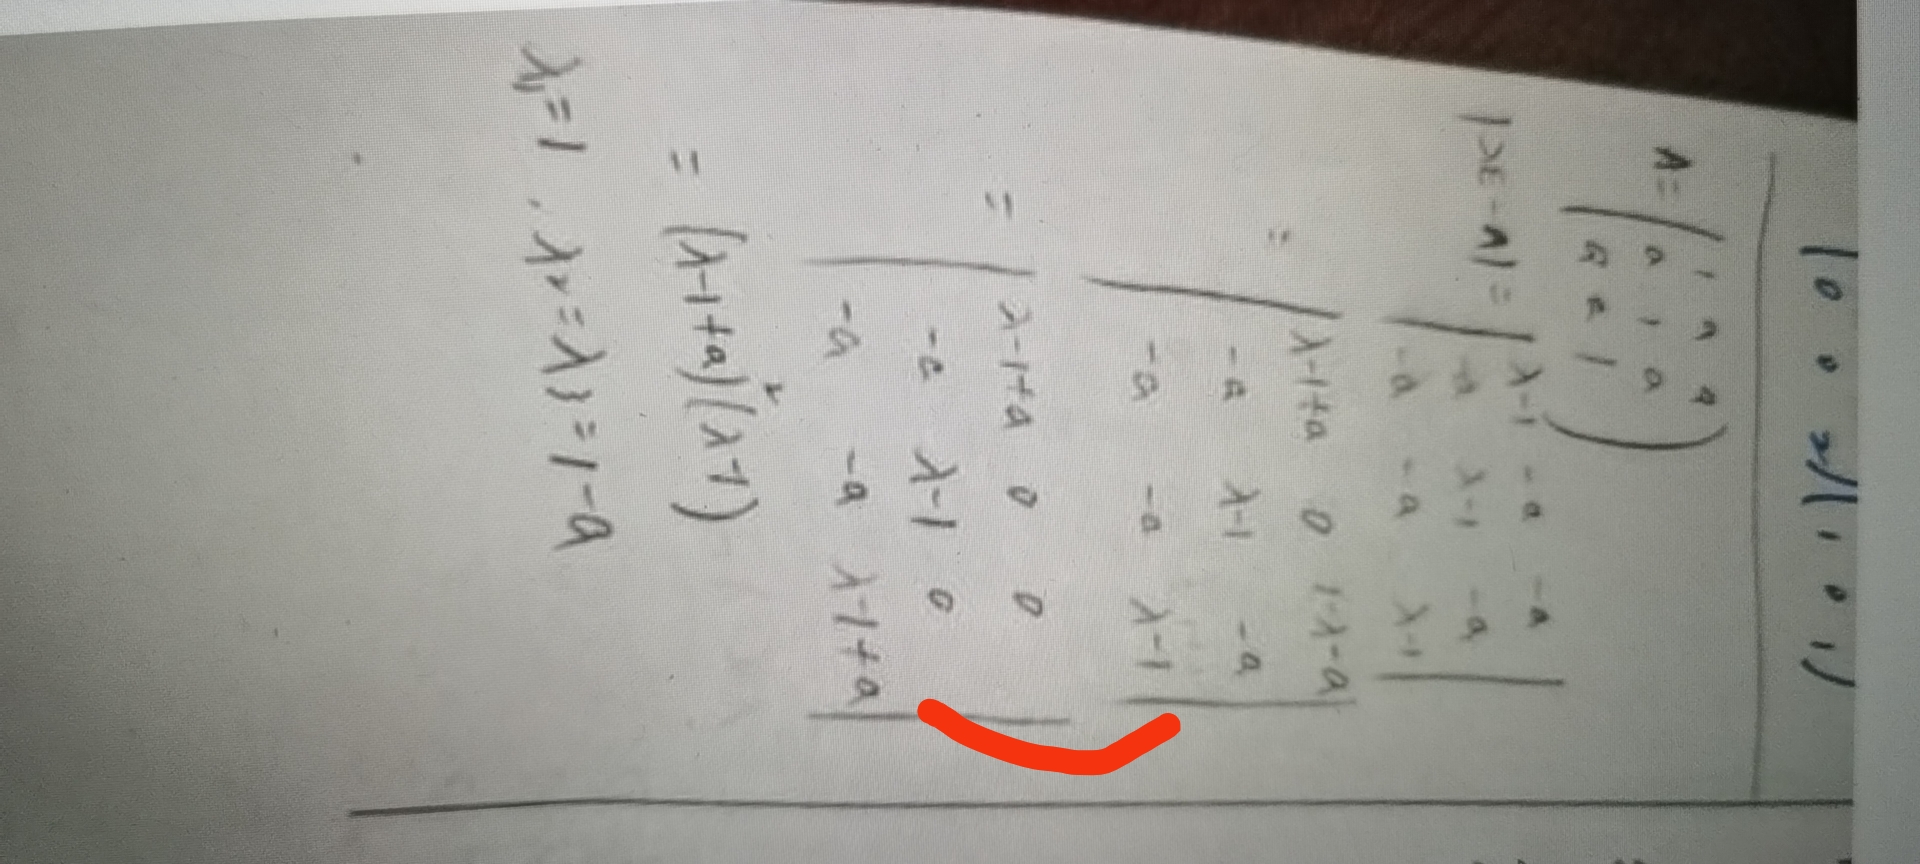 1 0 0 2 | 1 0 1 )
A = ( 1 a a
a 1 a
a a 1 )
|λE - A| = | λ-1 -a -a
-a λ-1 -a
-a -a λ-1 |
= | λ-1+a 0 1-λ-a
-a λ-1 -a
-a -a λ-1 |
= | λ-1+a 0 0
-a λ-1 0
-a -a λ-1+a |
= (λ-1+a)²(λ-1)
λ₁=1 , λ₂=λ₃=1-a